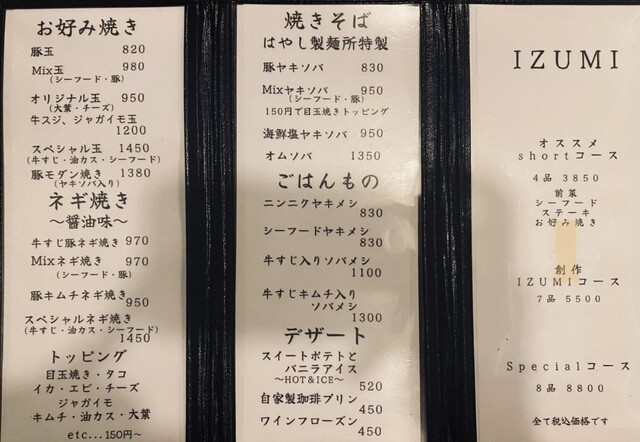 お好み焼き
豚玉 820
Mix玉 980
(シーフード・豚)
オリジナル玉 950
(大葉・チーズ)
牛スジ、ジャガイモ玉
1200
スペシャル玉 1450
(牛すじ・油カス・シーフード)
豚モダン焼き 1380
(ヤキソバ入り)
ネギ焼き
～醤油味～
牛すじ豚ネギ焼き 970
Mixネギ焼き 970
(シーフード・豚)
豚キムチネギ焼き
950
スペシャルネギ焼き
(牛すじ・油カス・シーフード)
1450
トッピング
目玉焼き・タコ
イカ・エビ・チーズ
ジャガイモ
キムチ・油カス・大葉
etc...150円～
焼きそば
はやし製麺所特製
豚ヤキソバ 830
Mixヤキソバ 950
(シーフード・豚)
150円で目玉焼きトッピング
海鮮塩ヤキソバ 950
オムソバ 1350
ごはんもの
ニンニクヤキメシ
830
シーフードヤキメシ
830
牛すじ入りソバメシ
1100
牛すじキムチ入り
ソバメシ
1300
デザート
スイートポテトと
バニラアイス
～HOT&ICE～
520
自家製珈琲プリン
450
ワインフローズン
450
IZUMI
オススメ
shortコース
4品 3850
前菜
シーフード
ステーキ
お好み焼き
創作
IZUMIコース
7品 5500
Specialコース
8品 8800
全て税込価格です